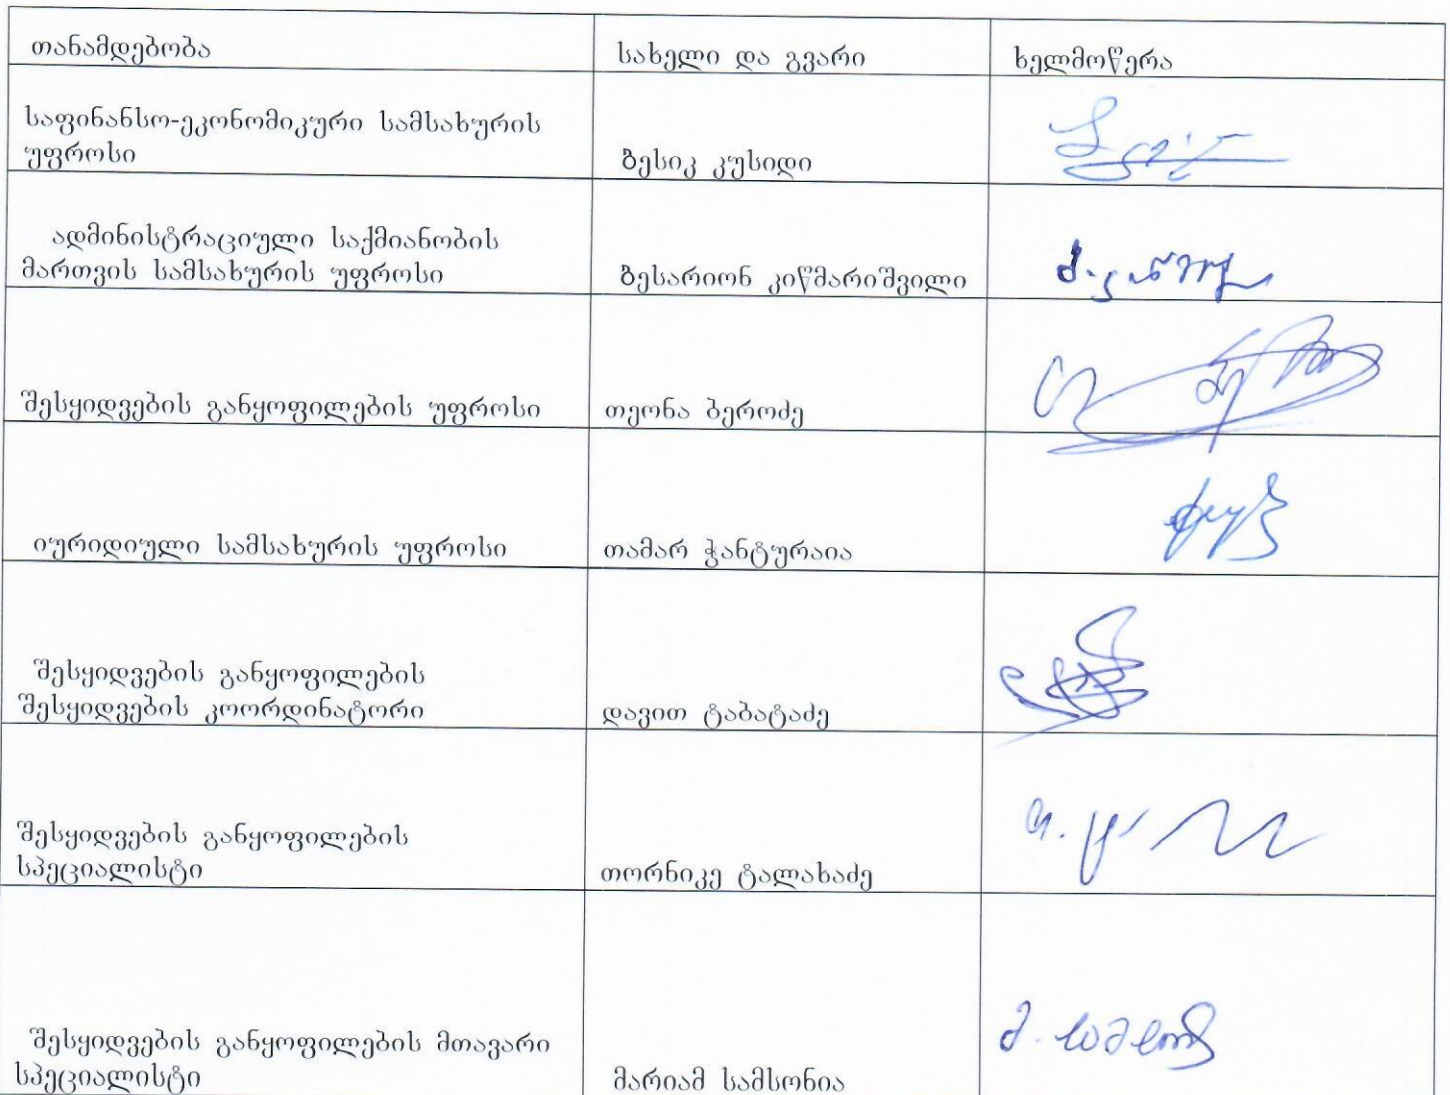 თანამდებობა სახელი და გვარი ხელმოწერა
საფინანსო-ეკონომიკური სამსახურის
უფროსი ბესიკ კუსიდი
ადმინისტრაციული საქმიანობის
მართვის სამსახურის უფროსი ბესარიონ კიწმარიშვილი
შესყიდვების განყოფილების უფროსი თეონა ბეროძე
იურიდიული სამსახურის უფროსი თამარ ჭანტურაია
შესყიდვების განყოფილების
შესყიდვების კოორდინატორი დავით ტაბატაძე
შესყიდვების განყოფილების
სპეციალისტი თორნიკე ტალახაძე
შესყიდვების განყოფილების მთავარი
სპეციალისტი მარიამ სამსონია